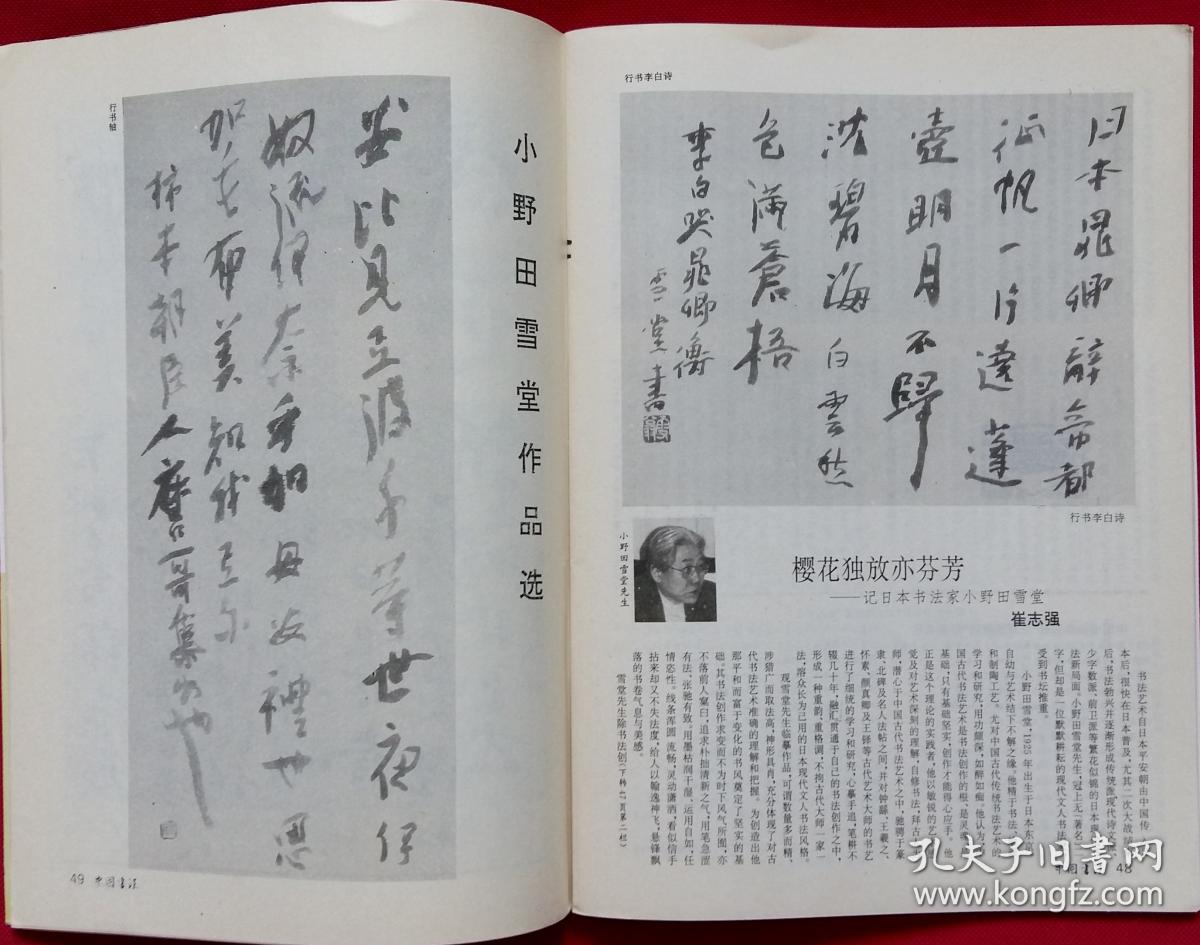 行书李白诗
日本晁卿辞帝都
征帆一片遶蓬
壺明月不歸
沈碧海白雲愁
色滿蒼梧
李白哭晁卿衡
雪堂書
行书李白诗
小野田雪堂先生
樱花独放亦芬芳
——记日本书法家小野田雪堂
崔志强
书法艺术自日本平安朝由中国传
本后,很快在日本普及,尤其二次大战
后,书法勃兴并逐渐形成传统派现代诗文
少字数派、前卫派等繁花似锦的日本
法新局面。小野田雪堂先生,冠上无“著名
字,但却是一位默默耕耘的现代文人书法
受到书坛推重。
小野田雪堂,1925年出生于日本东京
自幼与艺术结下不解之缘。他精于书法
和制陶工艺。尤对中国古代传统书法艺术的
学习和研究,用功颇深,如醉如痴。他认为
国古代书法艺术是书法创作的根、是灵魂
基础,只有基础坚实,创作才能得心应手。他
正是这个理论的实践者,他以敏锐的艺
觉及对艺术深刻的理解,自修书法,拜古
师,潜心于中国古代书法艺术之中,驰骋于篆
隶、北碑及名人法帖之间,并对钟繇、王羲之、
怀素、颜真卿及王铎等古代艺术大师的书艺
进行了细统的学习和研究,心摹手追,笔耕不
辍几十年,融汇贯通于自己的书法创作之中,
形成一种重韵、重格调、不拘古代大师一家一
法,溶众长为己用的日本现代文人书法风格。
观雪堂先生临摹作品,可谓数量多而精,
涉猎广而取法高,神形具肖,充分体现了对古
代书法艺术准确的理解和把握。为创造出他
那平和而富于变化的书风奠定了坚实的基
础。其书法创作求变而不为时下风气所囿,亦
不落前人窠臼,追求朴拙清新之气,用笔急涩
有法、张驰有致,用墨枯润干湿、运用自如,任
情恣性。线条浑圆、流畅,灵动潇洒,看似信手
拈来却又不失法度,给人以翰逸神飞,悬锋飘
落的书卷气息与美感。
雪堂先生除书法创(下转47页第二栏)
中国书法 48
小野田雪堂作品选
行书轴
49 中国书法
孔夫子旧书网
www.kongfz.com